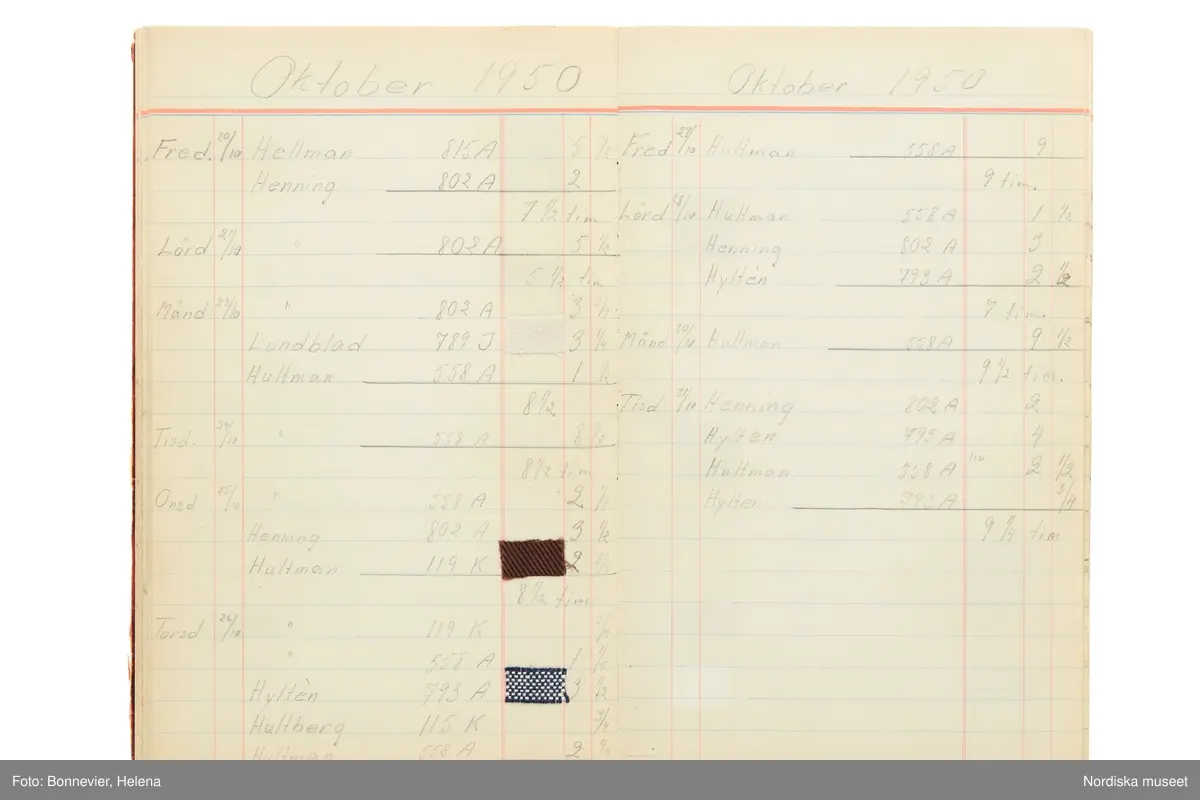 Oktober 1950
Fred. 20/10 Hellman 815 A 5 1/2
Henning 802 A 2
7 1/2 tim
Lörd 21/10 " 802 A 5 1/2
5 1/2 tim
Månd 23/10 " 802 A 3 3/4
Lundblad 789 J 3 1/4
Hultman 558 A 1 1/2
8 1/2
Tisd. 24/10 " 558 A 8 1/2
8 1/2 tim
Onsd 25/10 " 558 A 2
Henning 802 A 3 1/2
Hultman 119 K 2
8 1/2 tim
Torsd 26/10 " 119 K
" 558 A 1
Hyltén 793 A 3 1/2
Hultberg 115 K 3/4
Hultman 558 A 2
Oktober 1950
Fred 27/10 Hultman 558 A 9
9 tim.
Lörd 28/10 Hultman 558 A 1 1/2
Henning 802 A 3
Hyltén 793 A 2 1/2
7 tim.
Månd 30/10 Hultman 558 A 9 1/2
9 1/2 tim.
Tisd 31/10 Henning 802 A 2
Hyltén 793 A 4
Hultman 558 A 2 1/2
Hyltén 793 A 3/4
9 1/4 tim
Foto: Bonnevier, Helena
Nordiska museet